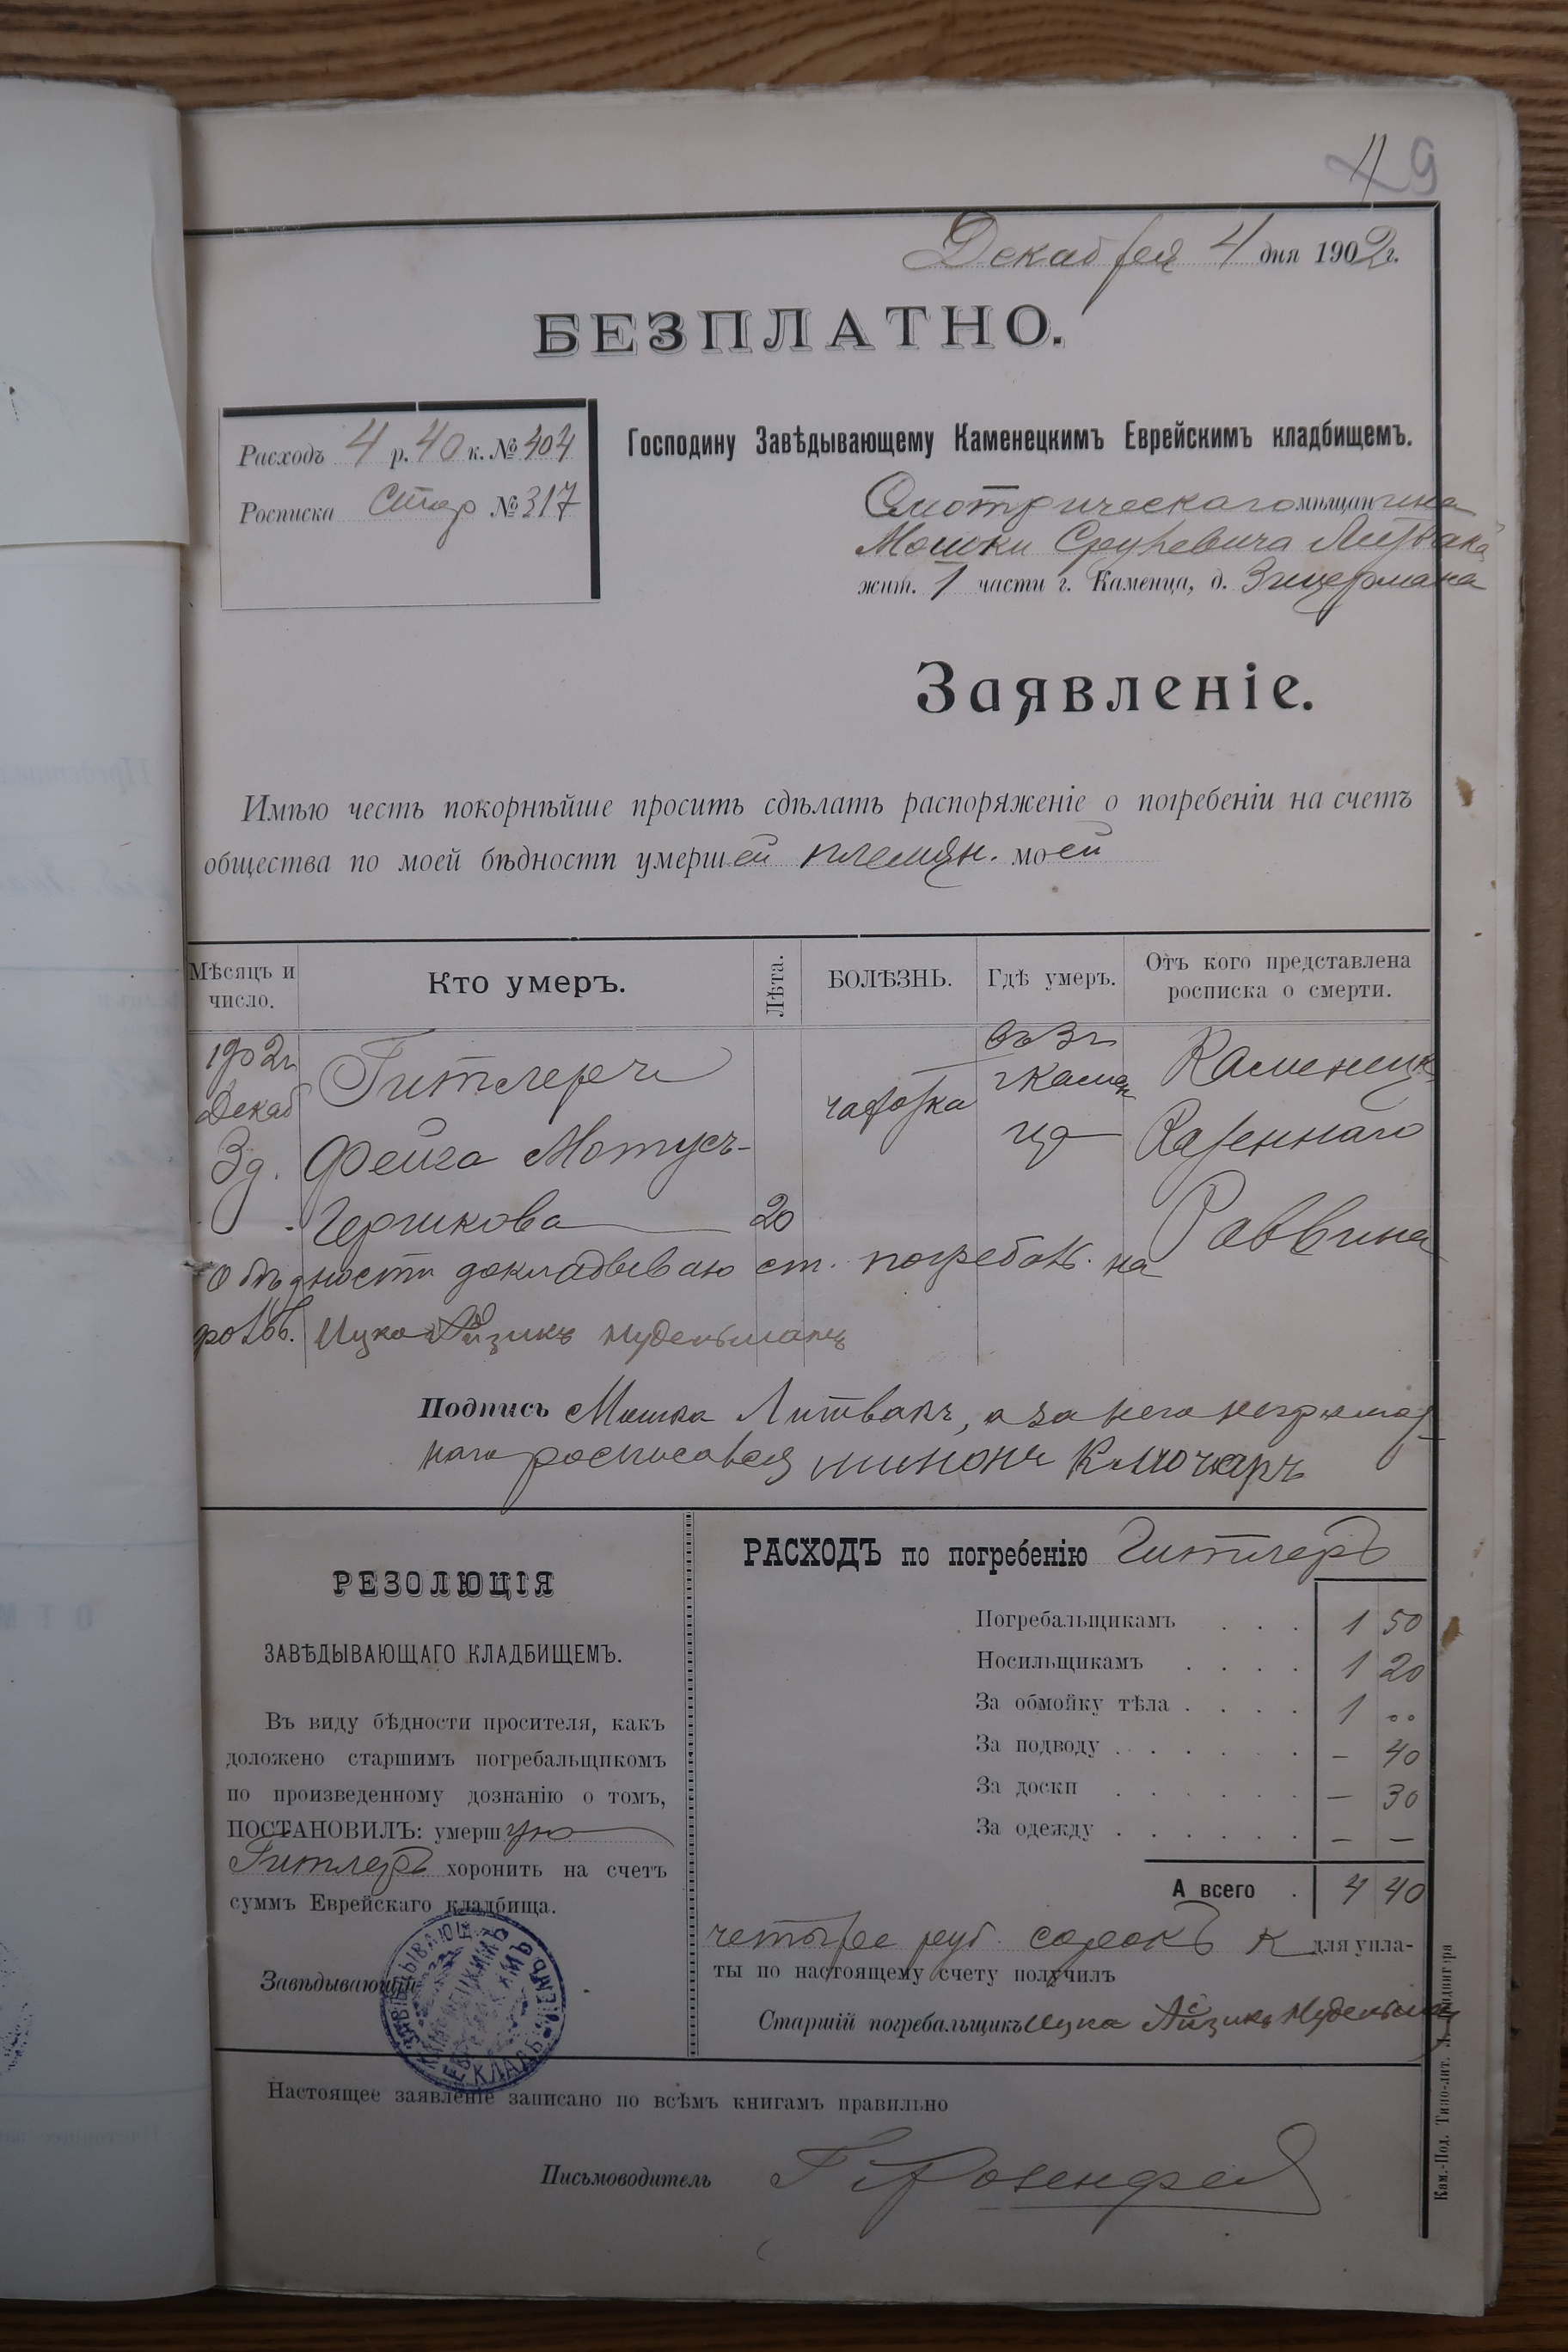 49
Декабря 4 дня 1902 г.
БЕЗПЛАТНО.
Расходъ 4 р. 40 к. № 404
Росписка Стар № 317
Господину Завѣдывающему Каменецкимъ Еврейскимъ кладбищемъ.
Смотрическаго мѣщанина
Мошки Сруhевича Литвака
жит. 1 части г. Каменца, д. Зицермана
Заявленіе.
Имѣю честь покорнѣйше просить сдѣлать распоряженіе о погребеніи на счетъ
общества по моей бѣдности умершей племян. моей
Мѣсяцъ и число.
Кто умеръ.
Лѣта.
БОЛѢЗНЬ.
Гдѣ умеръ.
Отъ кого представлена росписка о смерти.
1902 г.
Декаб
3 д.
Гитлеръ
Фейга Мотусь-
Гершкова
20
чахотка
въ
г Камен
цѣ
Каменецк
Казеннаго
Раввина
о бѣдности докладываю ст. погребальщ. на
Ицко Айзикъ Нудельманъ
Подпись Мошка Литвакъ, а за него неграмот
наго росписался Шимонъ Ключкаръ
РЕЗОЛЮЦІЯ
ЗАВѢДЫВАЮЩАГО КЛАДБИЩЕМЪ.
Въ виду бѣдности просителя, какъ
доложено старшимъ погребальщикомъ
по произведенному дознанію о томъ,
ПОСТАНОВИЛЪ: умершую
Гитлеръ хоронить на счетъ
суммъ Еврейскаго кладбища.
Завѣдывающій
РАСХОДЪ по погребенію Гитлеръ
Погребальщикамъ . . . 1 50
Носильщикамъ . . . . 1 20
За обмойку тѣла . . . . 1 ..
За подводу . . . . . . — 40
За доски . . . . . . — 30
За одежду . . . . . . — —
А всего . 4 40
четыре руб. сорокъ к для упла-
ты по настоящему счету получилъ
Старшій погребальщикъ Ицка Айзикъ Нудельман
Настоящее заявленіе записано по всѣмъ книгамъ правильно
Письмоводитель Розенфел
Кам.-Под. Типо-лит.